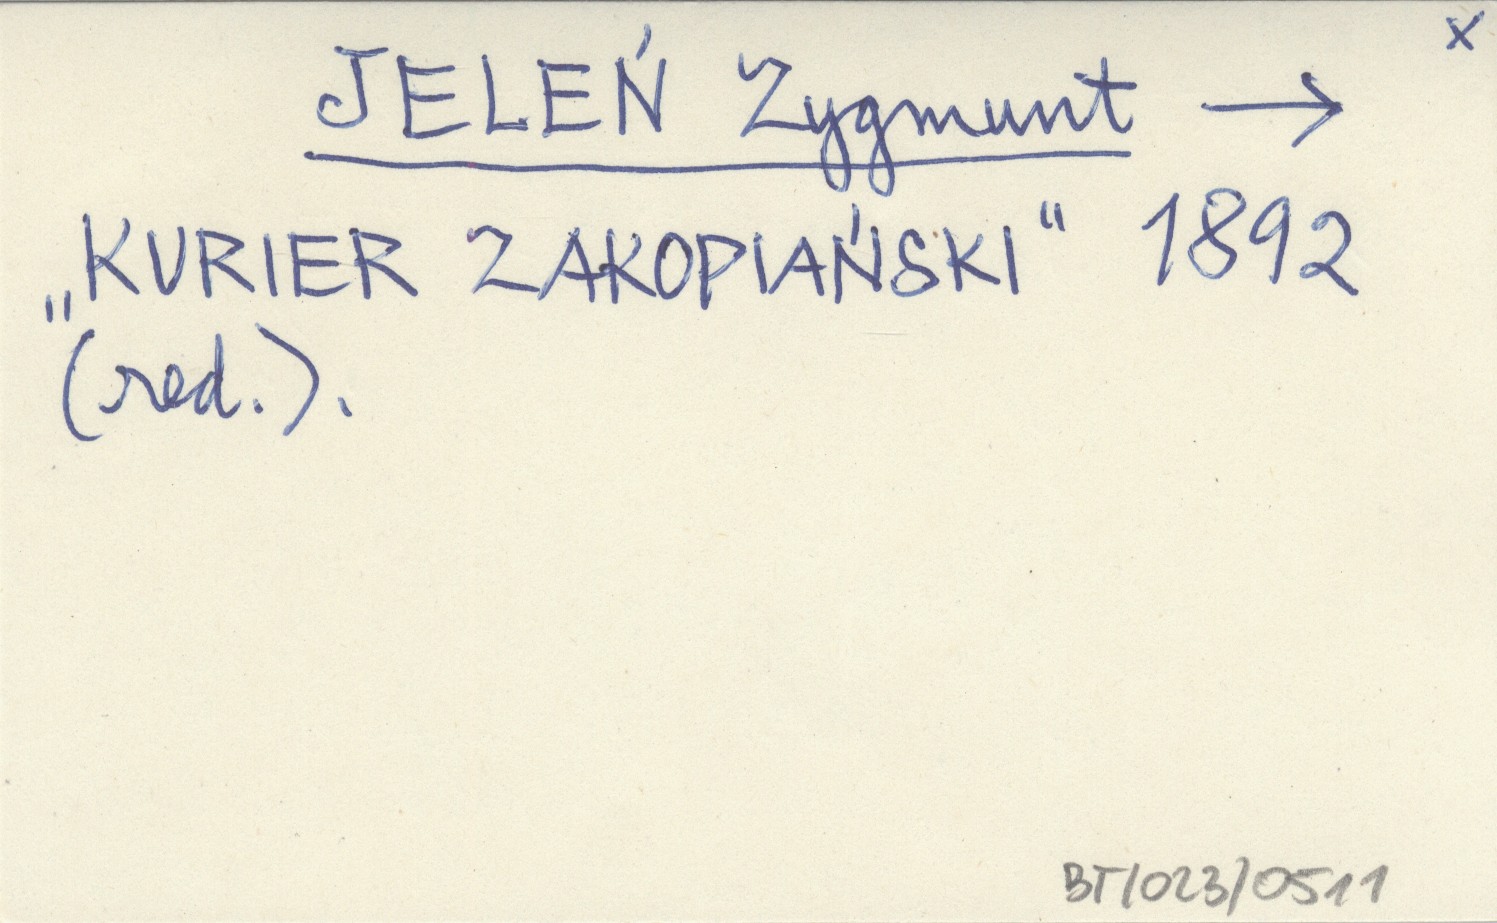 x
JELEŃ Zygmunt →
„KURIER ZAKOPIAŃSKI“ 1892
(red.).
BT/023/0511